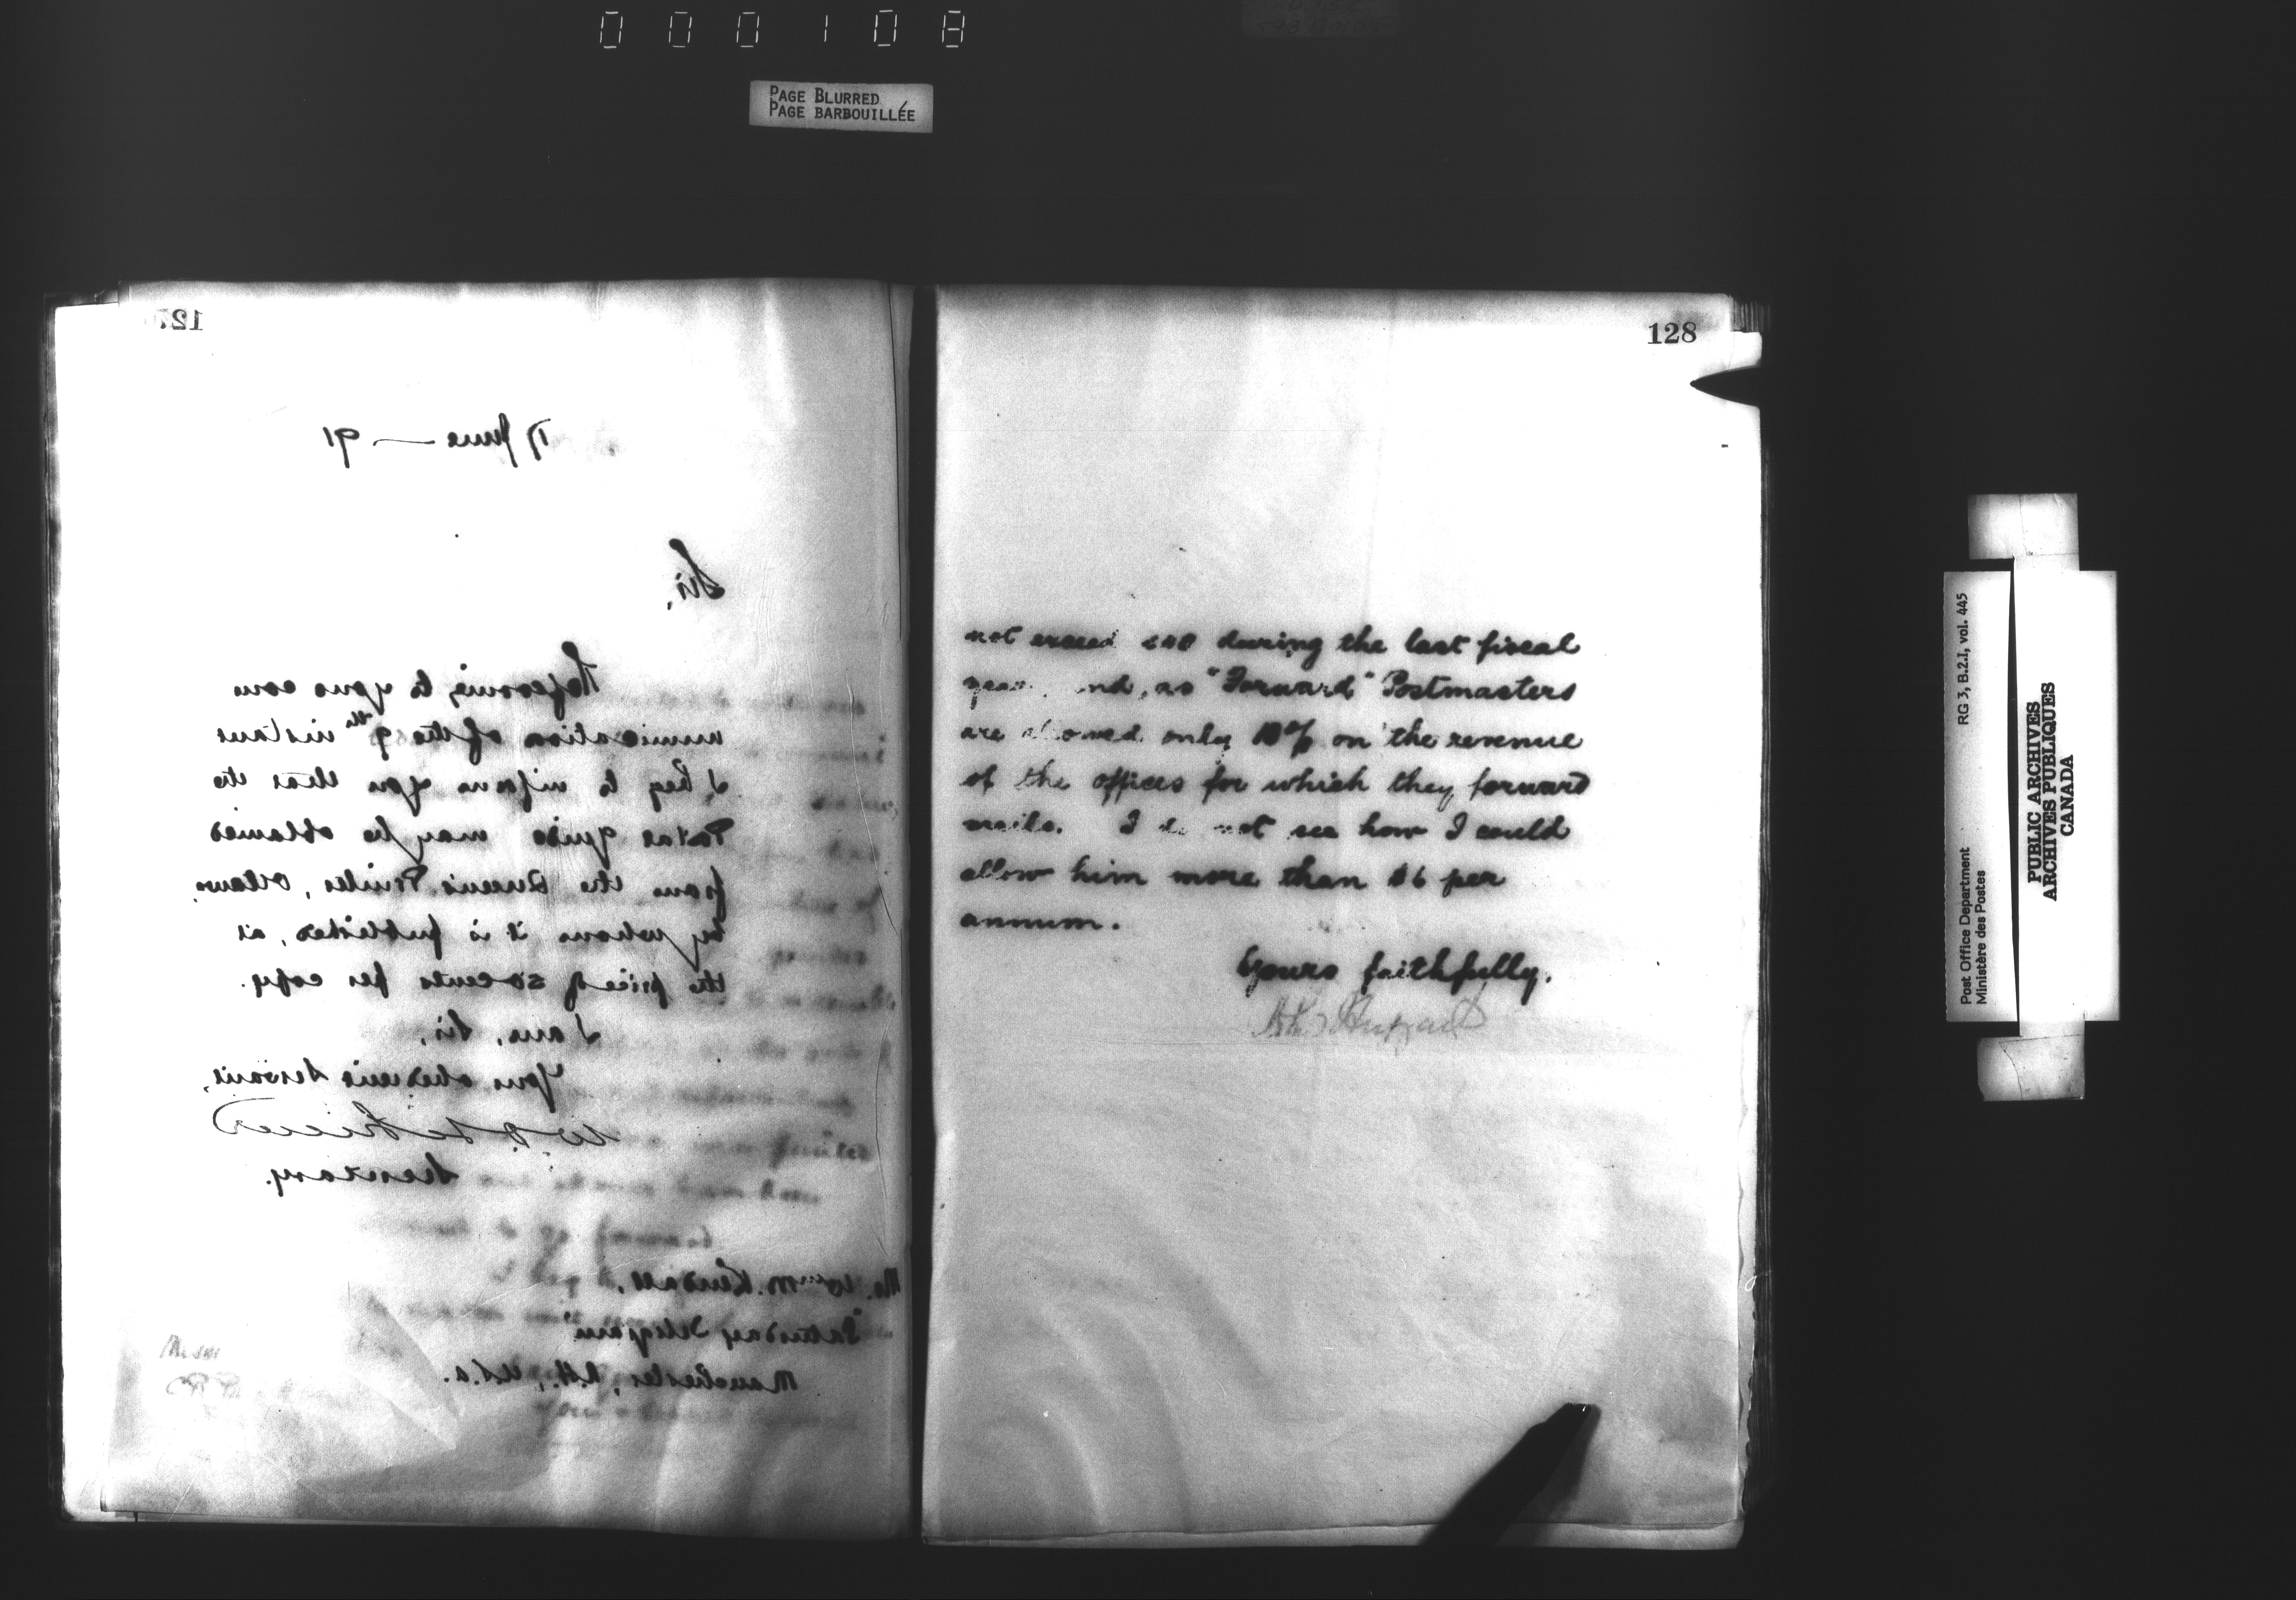 000108
PAGE BLURRED
PAGE BARBOUILLÉE
127
17 June — 91
Sir,
Referring to your com
munication of the 9th instant
I beg to inform you that the
Postal Guide may be obtained
from the Queen's Printer, Ottawa,
by whom it is published, at
the price of 50 cents per copy.
I am, Sir,
Your obedient Servant,
Secretary.
Mr. Wm M. Kendall,
"Saturday Telegram"
Manchester, N.H., U.S.A.
128
not exceed $40 during the last fiscal
year, and, as "Forward" Postmasters
are allowed only 10% on the revenue
of the offices for which they forward
mails. I do not see how I could
allow him more than $6 per
annum.
Yours faithfully,
Post Office Department
Ministère des Postes
RG 3, B.2.I, vol. 445
PUBLIC ARCHIVES
ARCHIVES PUBLIQUES
CANADA